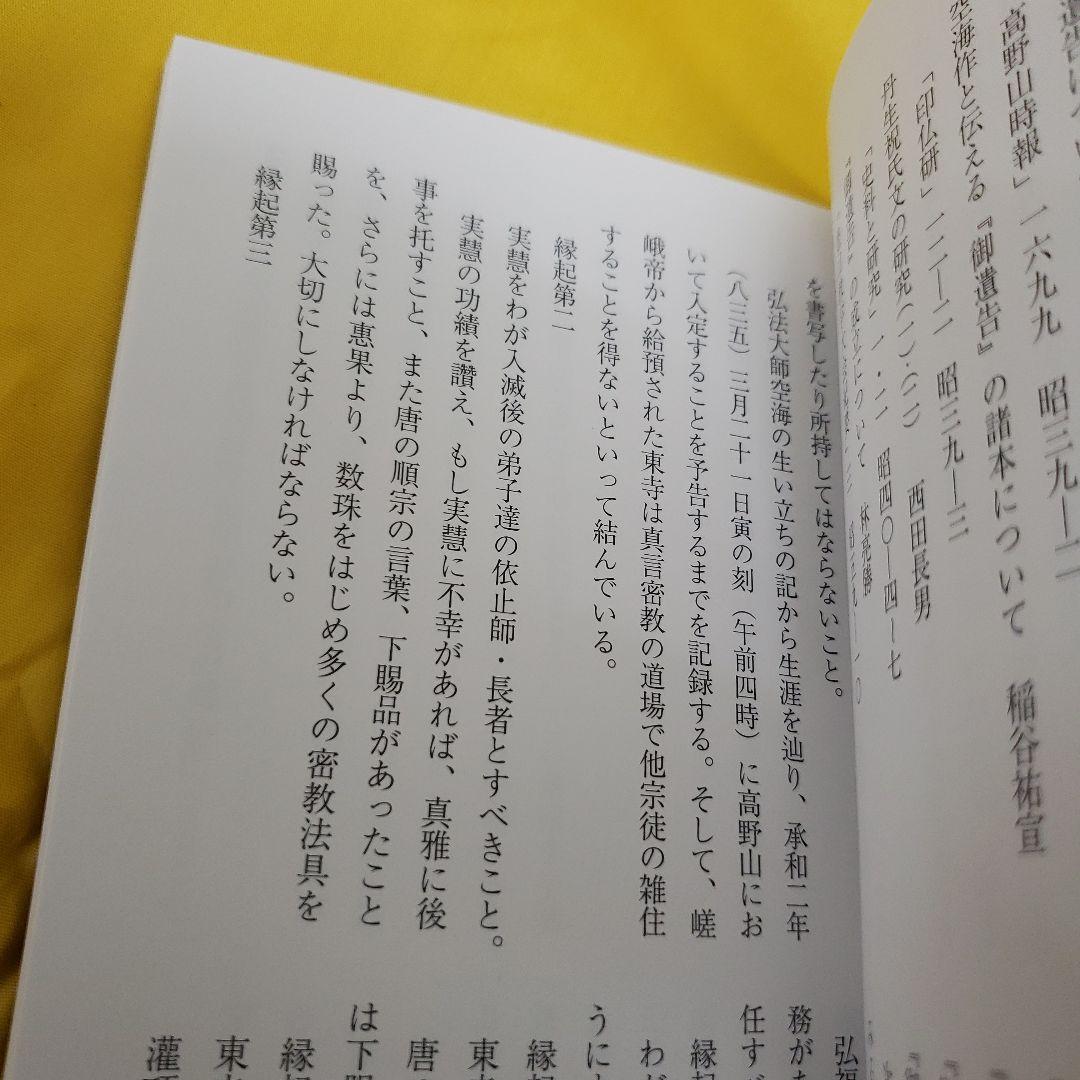 遺告に
『高野山時報』一六九九　昭三九―一
空海作と伝える『御遺告』の諸本について　稲谷祐宣
『印仏研』一二―二　昭三九―三
丹生祝氏文の研究（一）・（二）　西田長男
『史料と研究』一・二　昭四〇―四―七
の成立について　林亮勝
を書写したり所持してはならないこと。
弘法大師空海の生い立ちの記から生涯を辿り、承和二年
（八三五）三月二十一日寅の刻（午前四時）に高野山にお
いて入定することを予告するまでを記録する。そして、嵯
峨帝から給預された東寺は真言密教の道場で他宗徒の雑住
することを得ないといって結んでいる。
縁起第二
実慧をわが入滅後の弟子達の依止師・長者とすべきこと。
実慧の功績を讃え、もし実慧に不幸があれば、真雅に後
事を托すこと、また唐の順宗の言葉、下賜品があったこと
を、さらには恵果より、数珠をはじめ多くの密教法具を
賜った。大切にしなければならない。
縁起第三
弘福
務があ
任すべ
縁起
わが
うにす
縁起
東寺
唐の
は下
縁起
東寺
灌頂